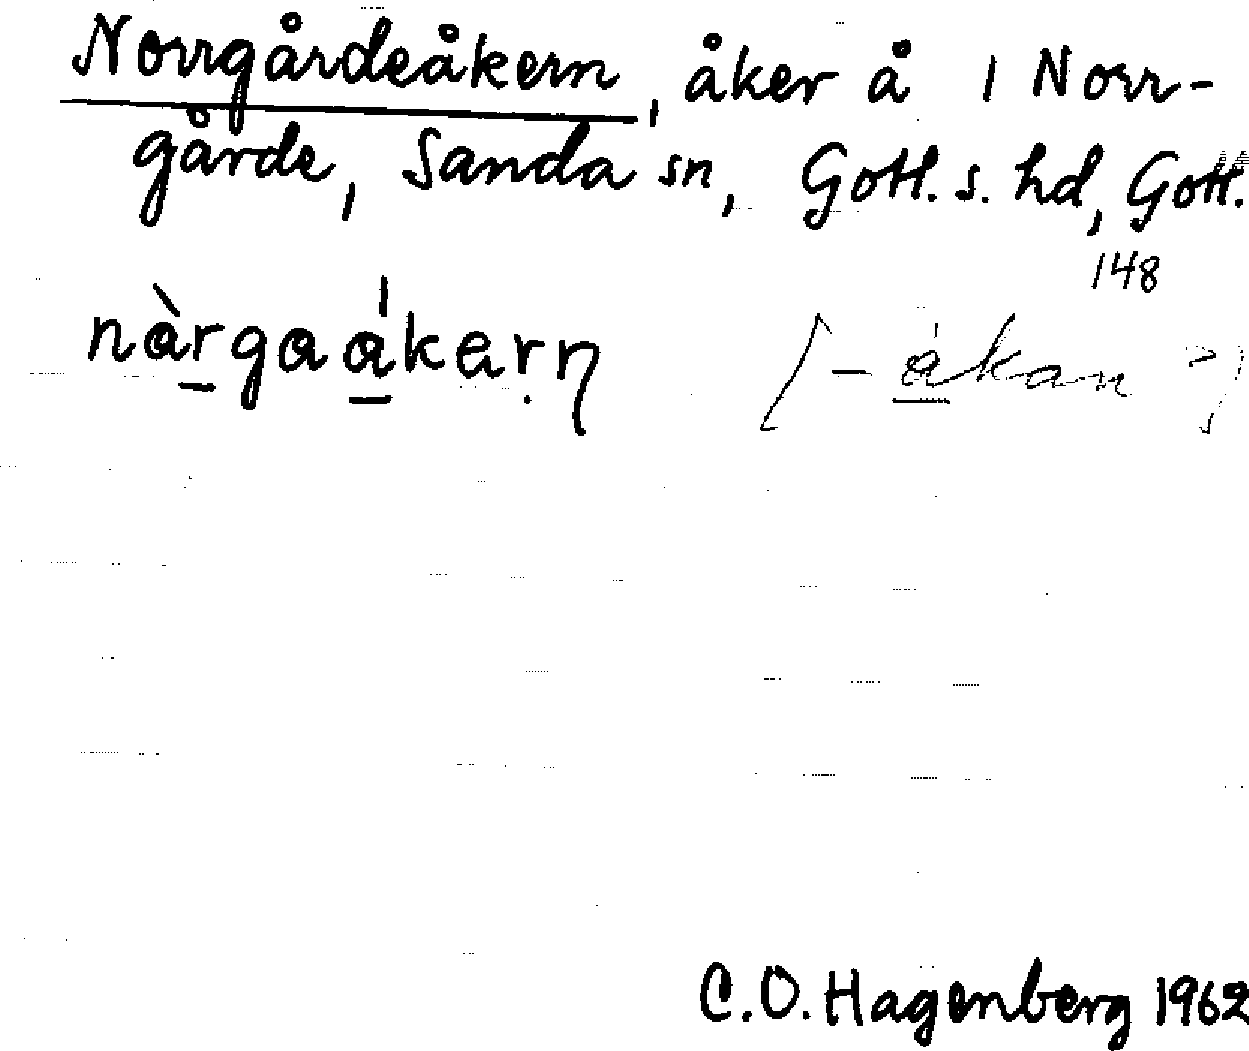 Norrgårdeåkern, åker å 1 Norr-
gårde, Sanda sn, Gotl. s. hd, Gotl.
148
nàrgaákarn (-åkan ?)
C.O. Hagenberg 1962